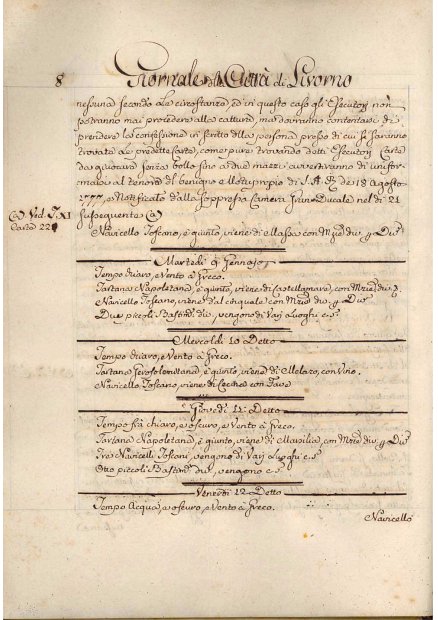 8 Giornale della Città di Livorno
nessuna secondo le circostanze, ed in questo caso gli Esecutori non
potranno mai procedere alla cattura, ma dovranno contentarsi di
prendere la confessione in scritto della persona presso di cui si saranno
trovate le predette Carte, come pure trovando detti Esecutori Carte
da giuocare senza bollo sino a due mazzi avvertiranno di unifor-
marsi al tenore del benigno Motuproprio di S. A. R. de 18 Agosto
1777, e Notificato dalla soppressa Camera Granducale nel dì 21
(a) Ved. T. XI susseguente (a)
Carta 221
Navicello Toscano, è giunto, viene di Massa con Mzie div. p. Div.
Martedì 9 Gennajo
Tempo chiaro, e Vento à Greco.
Tartana Napoletana, è giunto, viene di Castellamare, con Mzie div.
Navicello Toscano, viene dal Cinquale con Mzie div. p. Div.
Due piccoli Bastim. div. vengono di Varj Luoghi c.s.
Mercoldì 10 Detto
Tempo chiaro, e Vento à Greco.
Tartana Gerosolomitana, è giunto, viene di Melazo, con Vino.
Navicello, Toscano, viene di Cecina con Fave
Giovedì 11 Detto
Tempo frà chiaro, e oscuro, e Vento à Greco.
Tartana Napoletana, è giunto, viene di Marsilia, con Mzie div. p. Div.
Tre Navicelli Toscani, vengono di Varj Luoghi c.s
Otto piccoli Bastim. div. vengono c.s
Venerdì 12 Detto
Tempo Acqua, e oscuro, e Vento à Greco.
Navicello